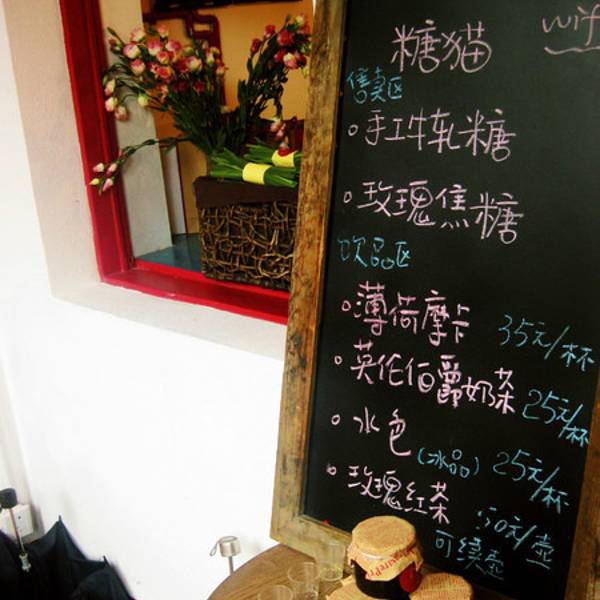 糖猫
wif
售卖区
手工牛轧糖
玫瑰焦糖
饮品区
薄荷摩卡 35元/杯
英伦伯爵奶茶 25元/杯
水色(冰品) 25元/杯
玫瑰红茶 50元/壶
可续壶